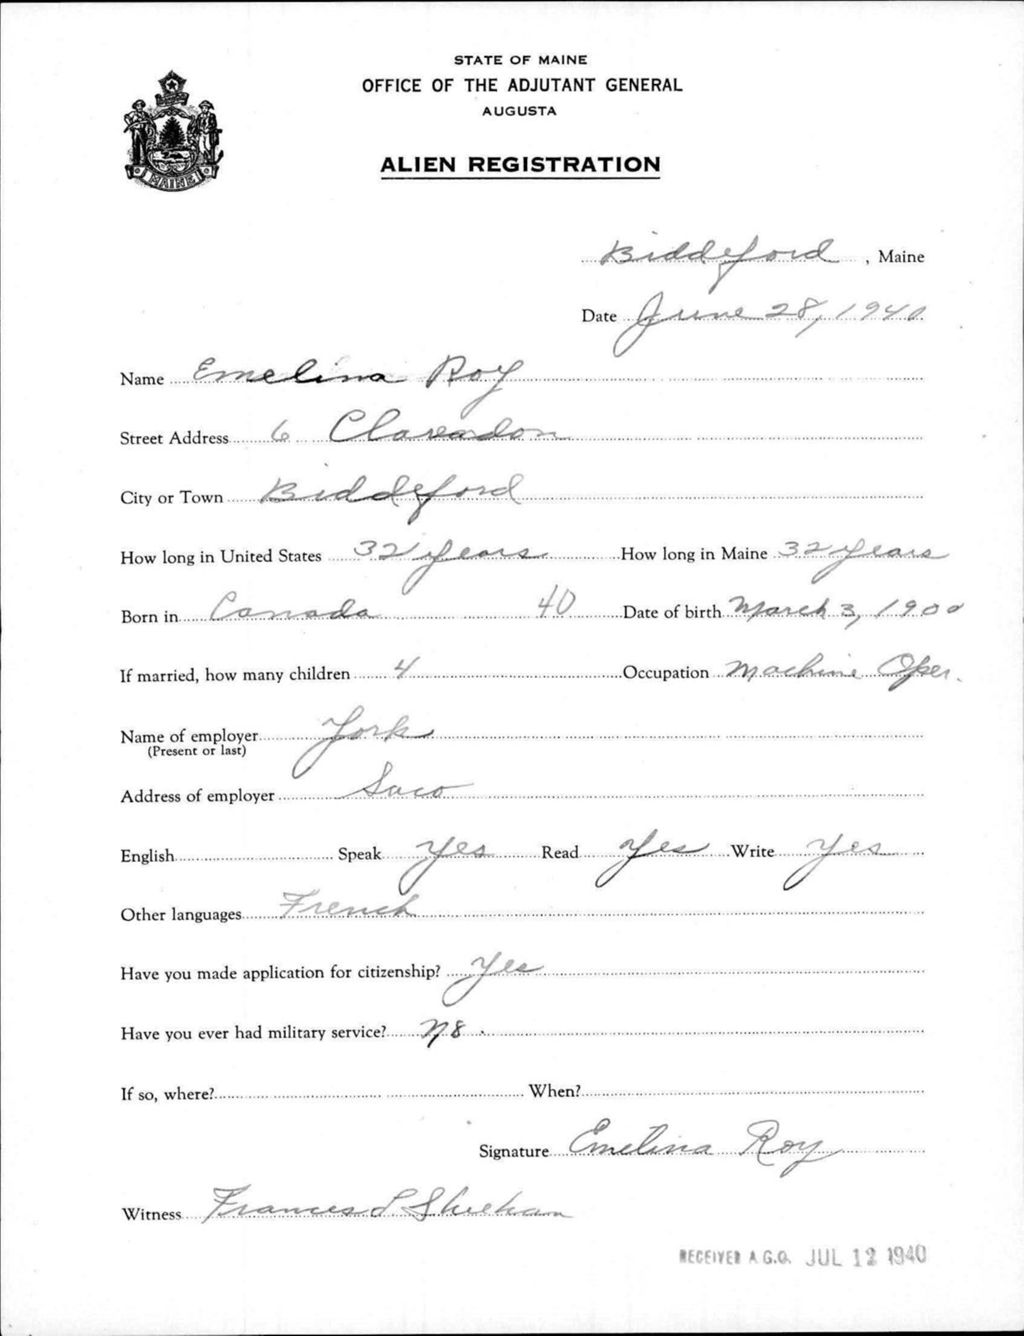 STATE OF MAINE
OFFICE OF THE ADJUTANT GENERAL
AUGUSTA
MAINE
ALIEN REGISTRATION
Biddeford, Maine
Date June 28, 1940
Name Emelina Roy
Street Address 6 Clarendon
City or Town Biddeford
How long in United States 32 years How long in Maine 32 years
Born in Canada 40 Date of birth March 3, 1900
If married, how many children 4 Occupation Machine Oper.
Name of employer York
(Present or last)
Address of employer Saco
English Speak Yes Read Yes Write Yes
Other languages French
Have you made application for citizenship? Yes
Have you ever had military service? No
If so, where? When?
Signature Emelina Roy
Witness Frances L. Sheehan
RECEIVED A.G.O. JUL 12 1940